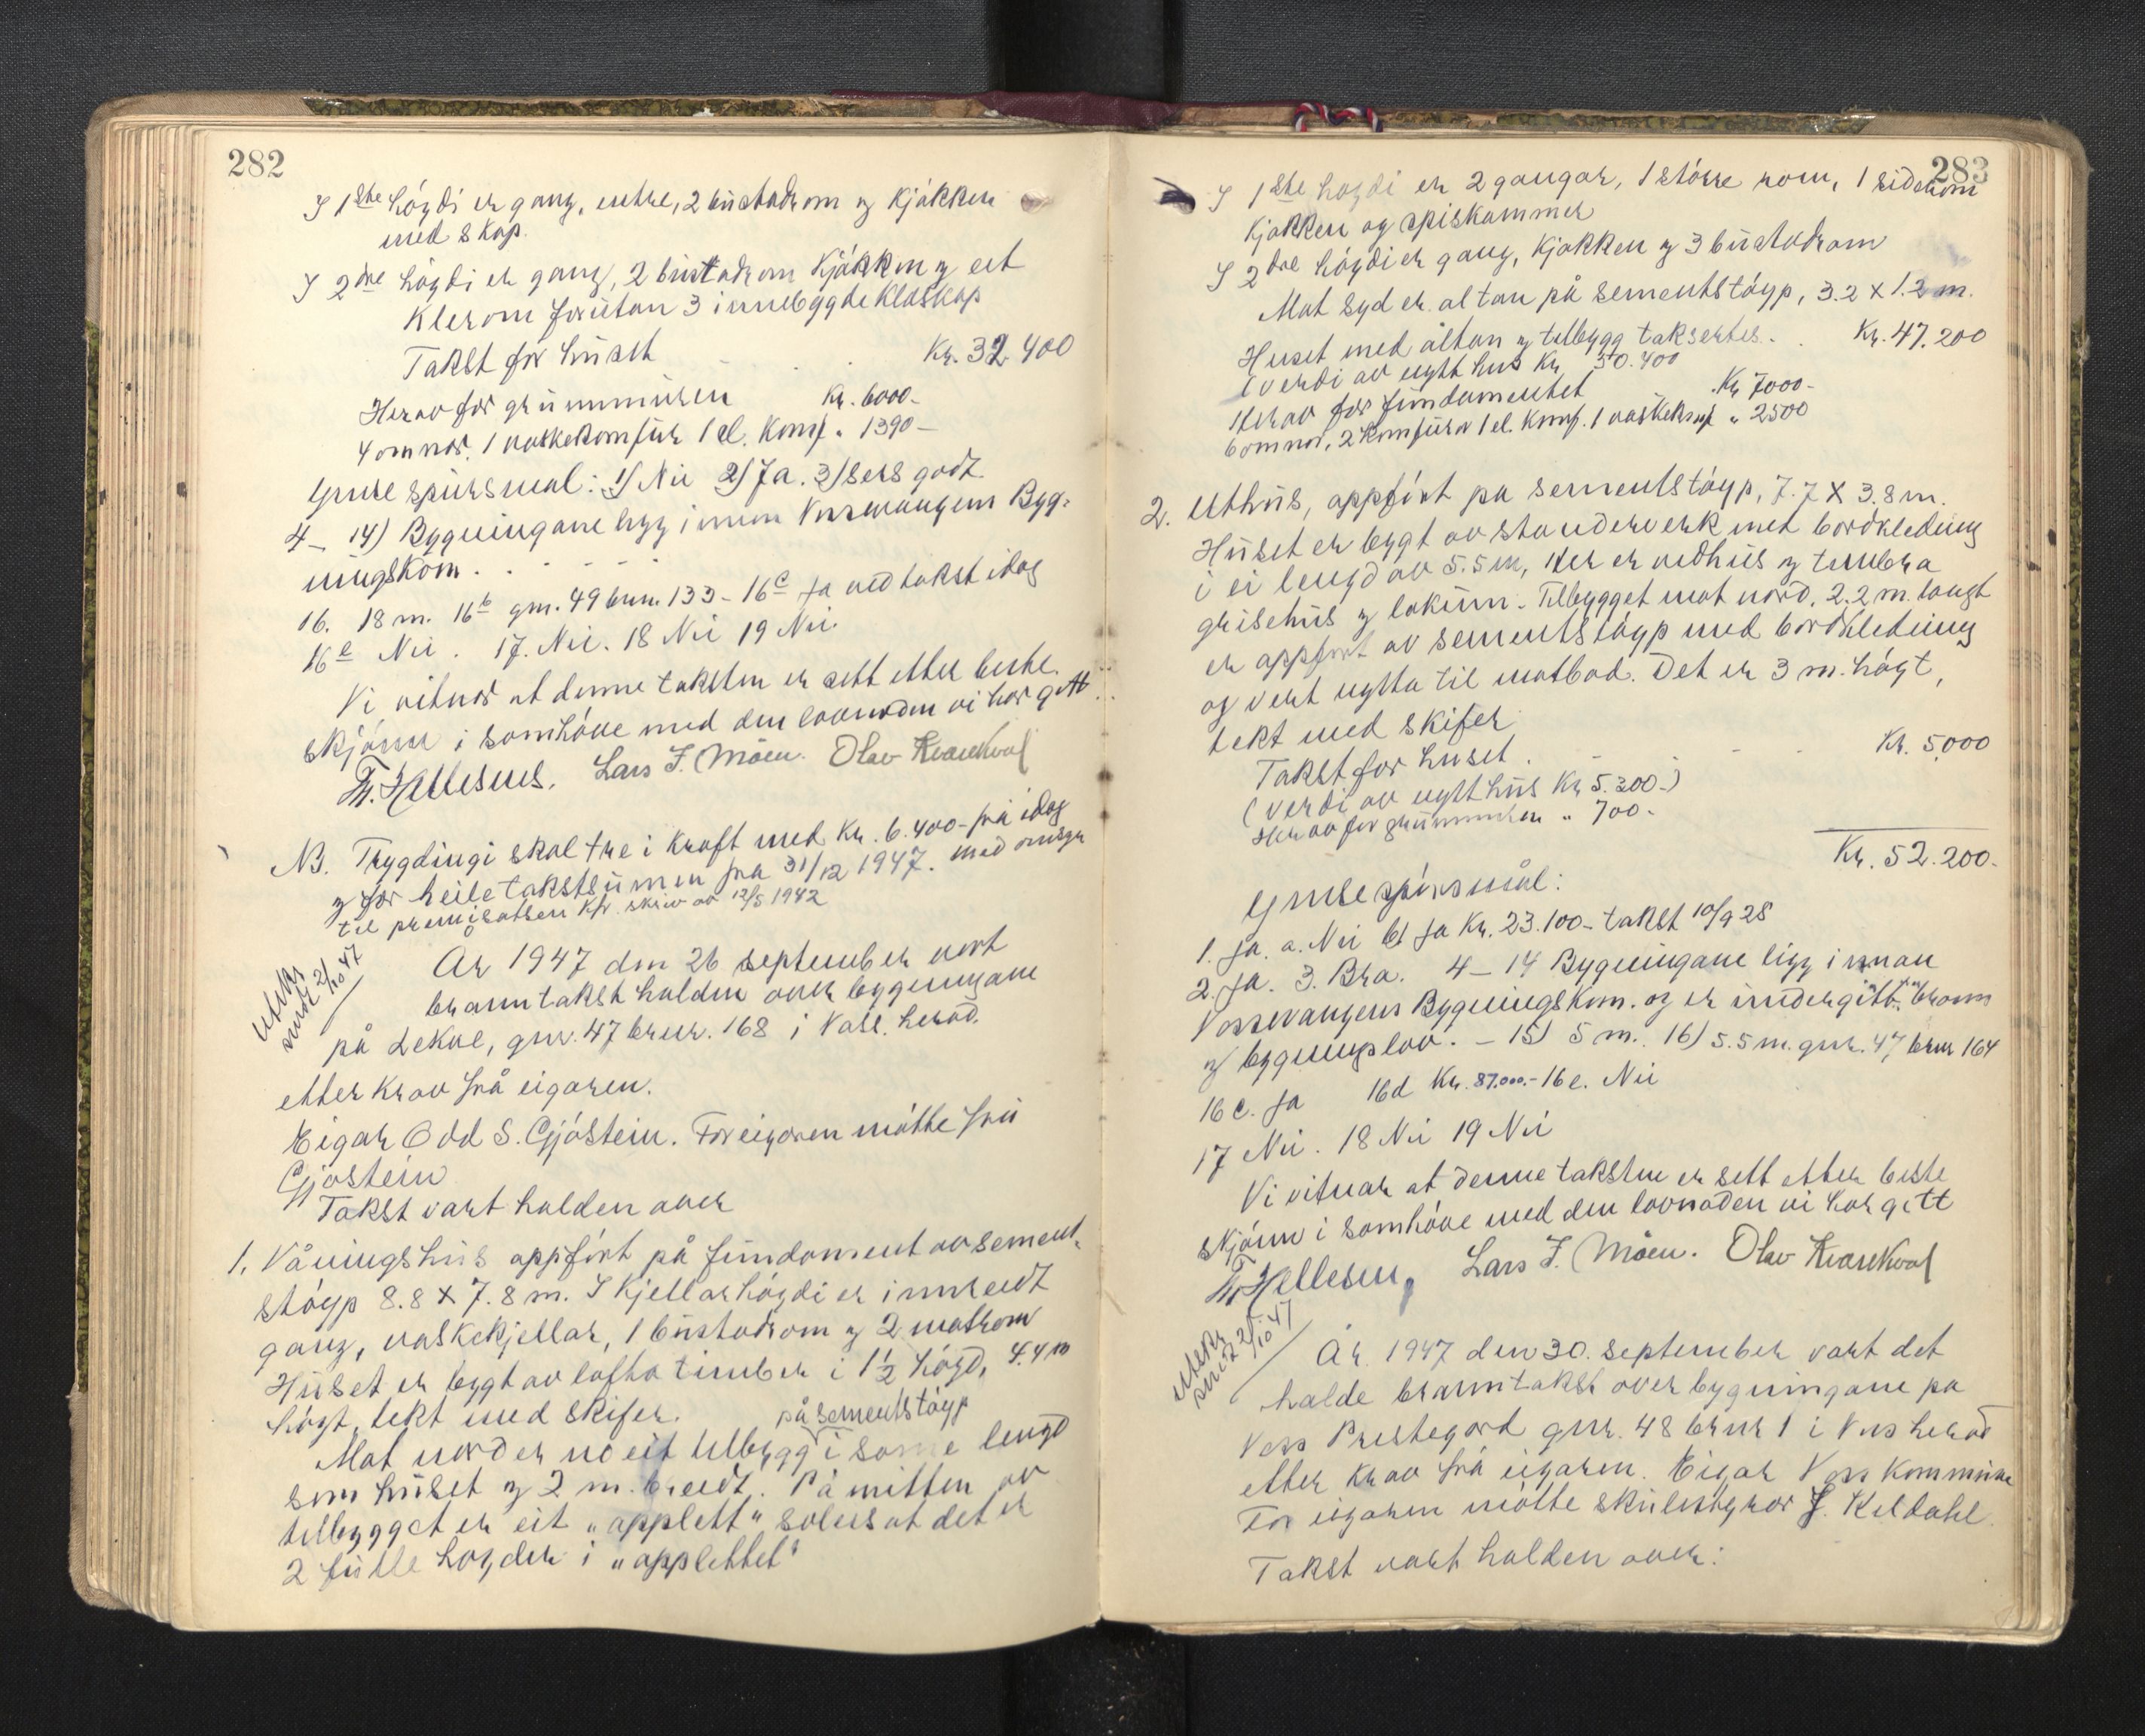 282
I 1ste högdi er gang, entre, 2 bustadrom og kjökken
med skap.
I 2dre högdi er gang, 2 bustadrom kjökken og eit
klerom forutan 3 innebygde klæskap
Takst for huset Kr. 32.400
Herav for grunnmuren Kr. 6000-
4 omnar. 1 vaskekomfur 1 el. Komf. " 1390-
Ymse spursmal: 1) Nei 2) Ja. 3) Sers godt.
4- 14) Bygningane ligg innan Vossevangen Byg-
ningskom.
16. 18 m. 16b gnr. 49 brnr. 133 - 16c Ja ved takst idag
16e Nei. 17. Nei. 18 Nei 19 Nei.
Vi vitnar at denne taksten er sett etter beste
skjönn i samhöve med den lovnaden vi har gett
Lars J. Möen. Olav Kvarekval
NB. Trygdingi skal tre i kraft med Kr. 6.400- frå idag
og for heile takstsumen fra 31/12 1947. med omsyn
til premiesatsen Kfr. skriv av 12/5 1942
Utskr.
sendt 2/10 47
Ar 1947 den 26 september vart
branntakst halden over bygningane
på Lekve, gnr. 47 brnr. 168 i Voss herad.
etter krav frå eigaren.
Eigar Odd S. Gjöstein. For eigaren mötte fru
Gjöstein
Takst vart halden over
1. Våningshus oppfört på fundament av sement-
stöyp 8.8 X 7.8 m. I kjellarhögdi er innreidt
gang, vaskekjellar, 1 bustadrom og 2 matrom
Huset er bygt av lafta timber i 1½ högd, 4.4 m
högt, tekt med skifer.
på sementstöyp
Mot nord er no eit tilbygg i same lengd
som huset og 2 m. breidt. På mitten av
tilbygget er eit "applett" soleis at det er
2 fulle högder i "applettet"
283
I 1ste högdi er 2 gangar, 1 större rom, 1 siderom
Kjökken og spiskammer
I 2dre högdi er gang, Kjökken og 3 bustadrom
Mot Syd er altan på sementstöyp, 3.2 X 1.2 m.
Huset med altan og tilbygg taksertes. Kr. 47.200
(verdi av nytt hus Kr. 50.400
Herav for fundamentet Kr 7000-
6 omnar, 2 Komfurar 1 el. Komf. 1 vaskekomf " 2500
2. Uthus, oppfört pa sementstöyp, 7.7 X 3.8 m.
Huset er bygt av standerverk med bordkledning
i ei lengd av 5.5 m, Her er vedhus og timbra
grisehus og lokum. Tilbygget mot nord, 2.2 m. langt
er oppfört av sementstöyp med bordkledning
og vert nytta til matbod. Det er 3 m. högt,
tekt med skifer
Takst for huset. Kr. 5,000
(verdi av nytt hus Kr 5.300-)
Herav for grunnmuren " 700-
Kr. 52.200-
Ymse spursmål:
1. Ja. a. Nei b) Ja Kr. 23.100- takst 10/9 28
2. Ja. 3. Bra. 4-14 Bygningane ligg innan
Vossevangens Bygningskom. og er undergitt brann
og bygningslov. - 15) 5 m. 16) 5.5 m. gnr. 47 brnr 164
16 c. Ja 16d Kr. 87.000.- 16 e. Nei
17 Nei. 18 Nei 19 Nei
Vi vitnar at denne taksten er sett etter beste
skjönn i samhöve med den lovnaden vi har gitt
Lars J. Möen. Olav Kvarekval
Utskr.
sendt 2/10 47
År 1947 den 30. september vart det
halde branntakst over bygningane pa
Voss Prestegard gnr. 48 brnr 1 i Voss herad
etter krav frå eigaren. Eigar Voss Kommune
For eigaren mötte skulestyrar J. Keldahl.
Takst vart halden over: